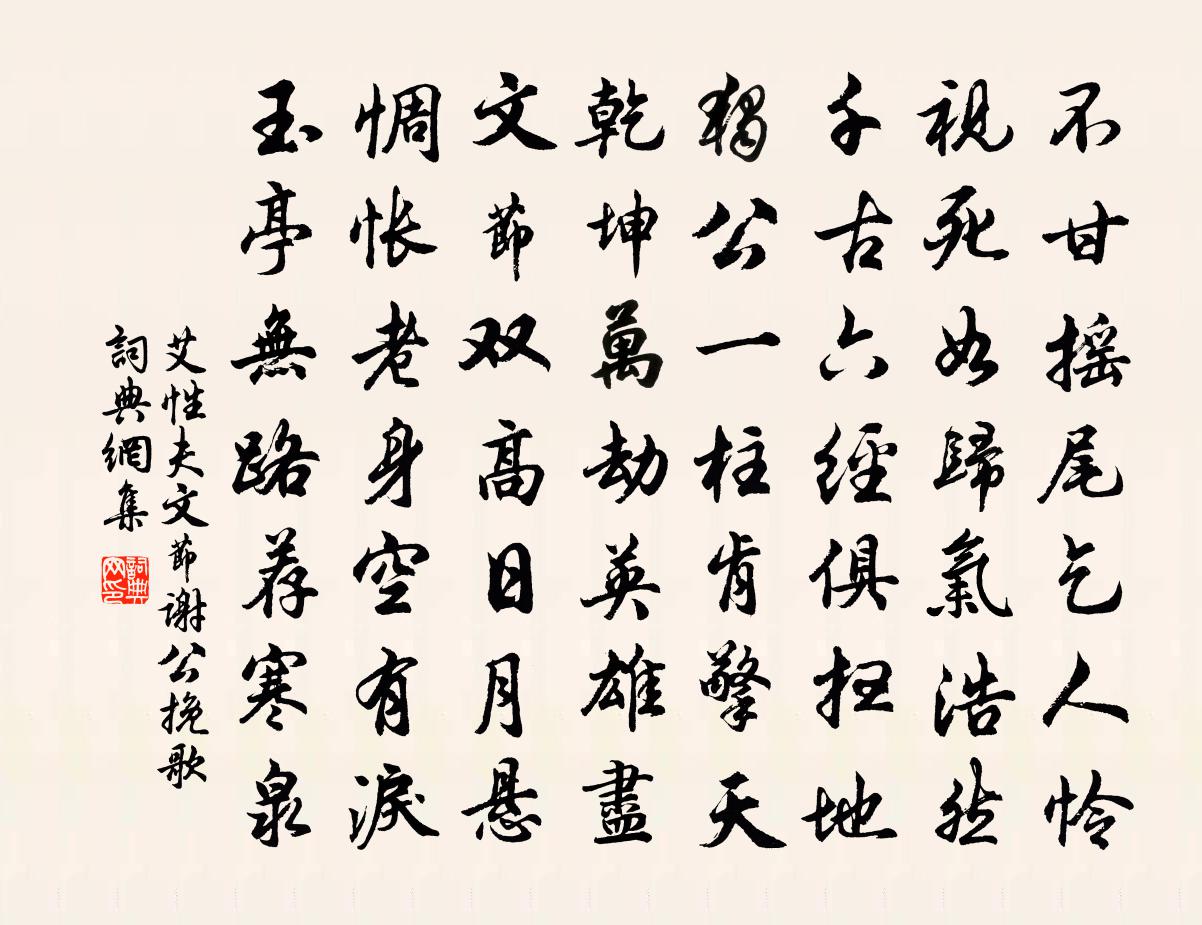 不甘摇尾乞人怜
视死如歸氣浩然
千古六經俱扫地
獨公一柱肯擎天
乾坤萬劫英雄盡
文節双高日月悬
惆怅老身空有淚
玉亭無路荐寒泉
艾性夫文節谢公挽歌
詞典網集
詞典网印